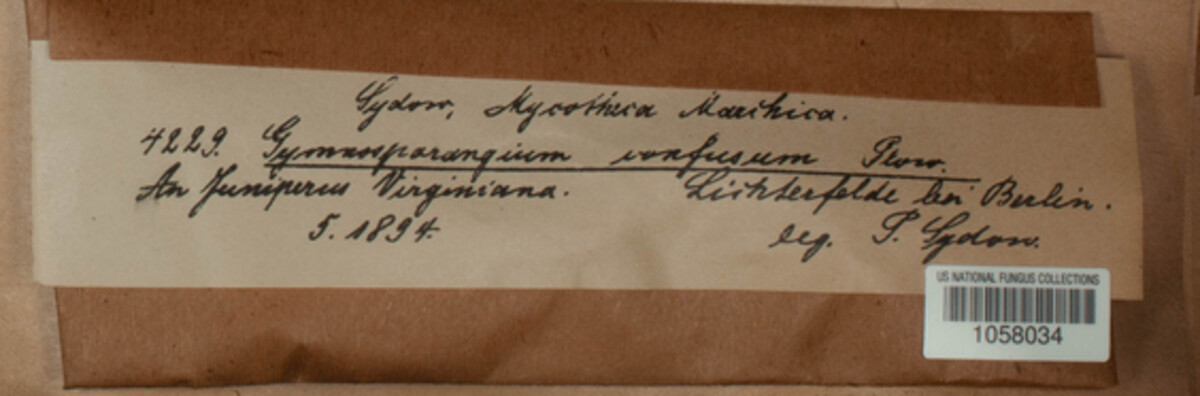 Sydow, Mycotheca Marchica.
4229. Gymnosporangium confusum Plow.
An Juniperus Virginiana. Lichterfelde bei Berlin.
5. 1894. leg. P. Sydow.
US NATIONAL FUNGUS COLLECTIONS
1058034